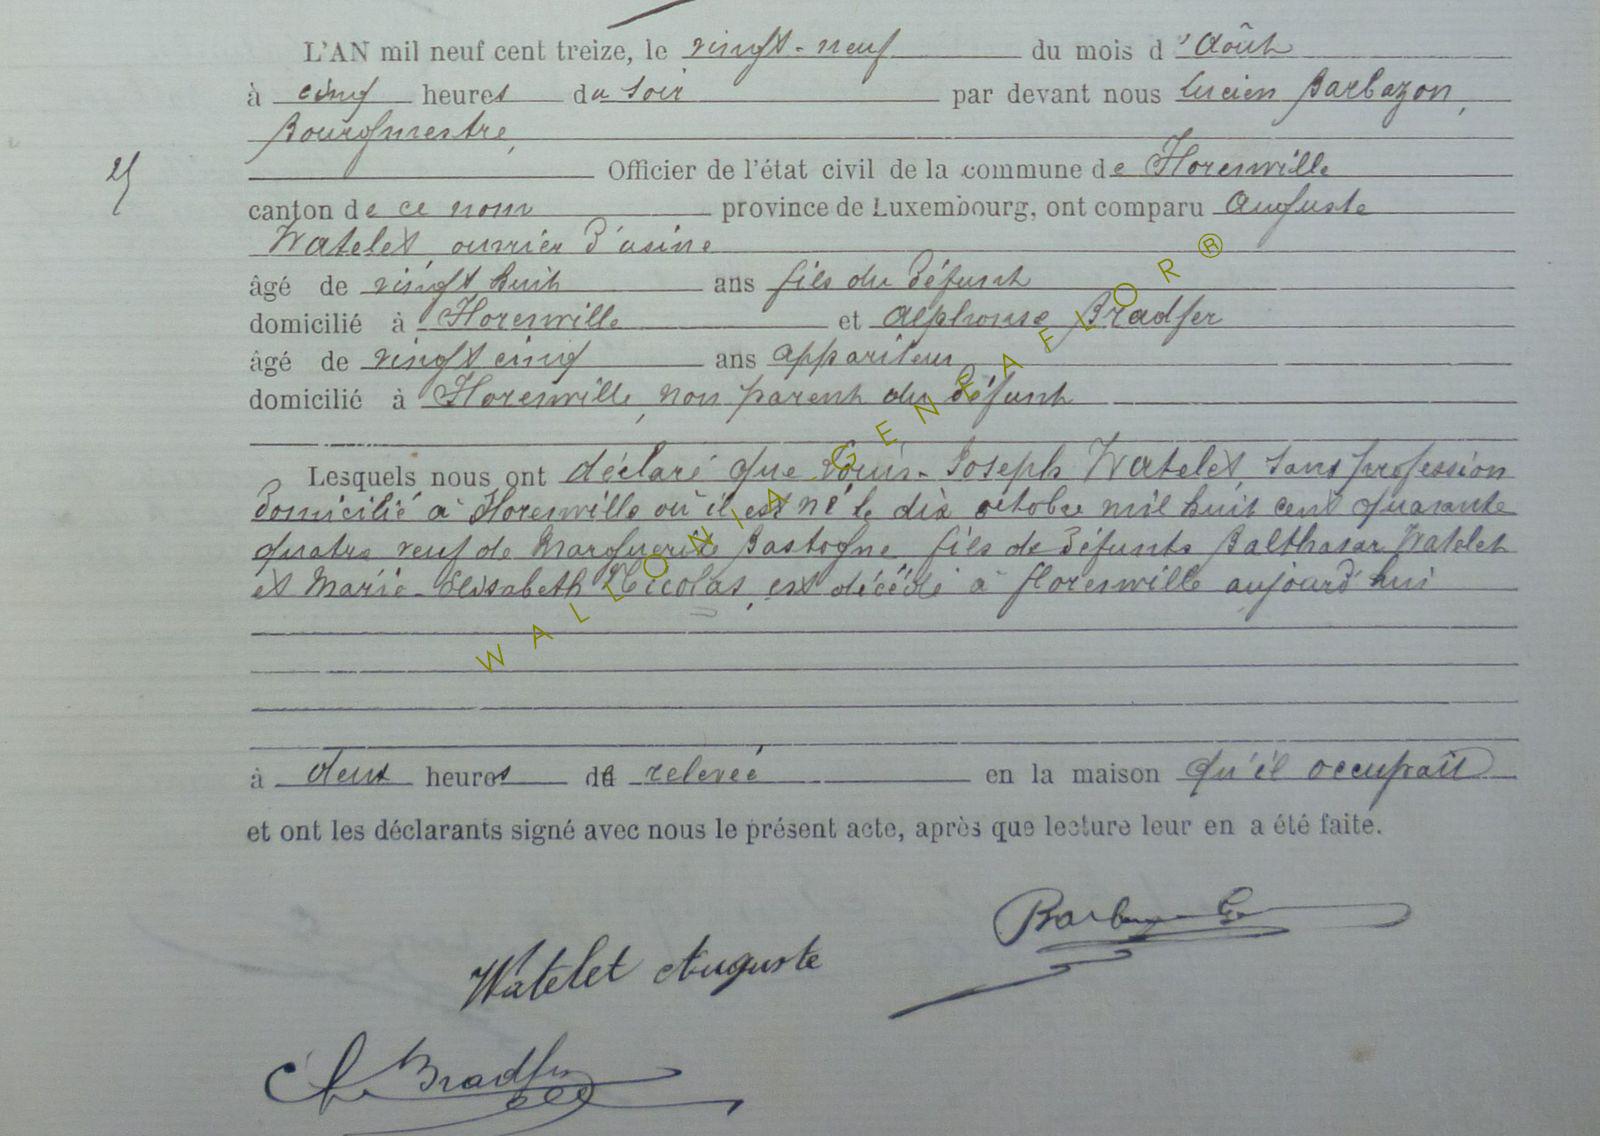 L'AN mil neuf cent treize, le vingt-neuf du mois d'Août
à cinq heures du soir par devant nous Lucien Barbazon,
Bourgmestre,
Officier de l'état civil de la commune de Florenville
canton de ce nom province de Luxembourg, ont comparu Auguste
Watelet, ouvrier d'usine
âgé de vingt huit ans fils du défunt
domicilié à Florenville et Alphonse Bradfer
âgé de vingt cinq ans appariteur
domicilié à Florenville, non parent du défunt
Lesquels nous ont déclaré que Louis-Joseph Watelet, sans profession
domicilié à Florenville où il est né le dix octobre mil huit cent quarante
quatre veuf de Marguerite Bastogne, fils de défunts Balthasar Watelet
et Marie-Elisabeth Nicolas, est décédé à Florenville aujourd'hui
à deux heures de relevée en la maison qu'il occupait
et ont les déclarants signé avec nous le présent acte, après que lecture leur en a été faite.
Watelet Auguste
Bradfer
WALLONIA GENEAFLOR®